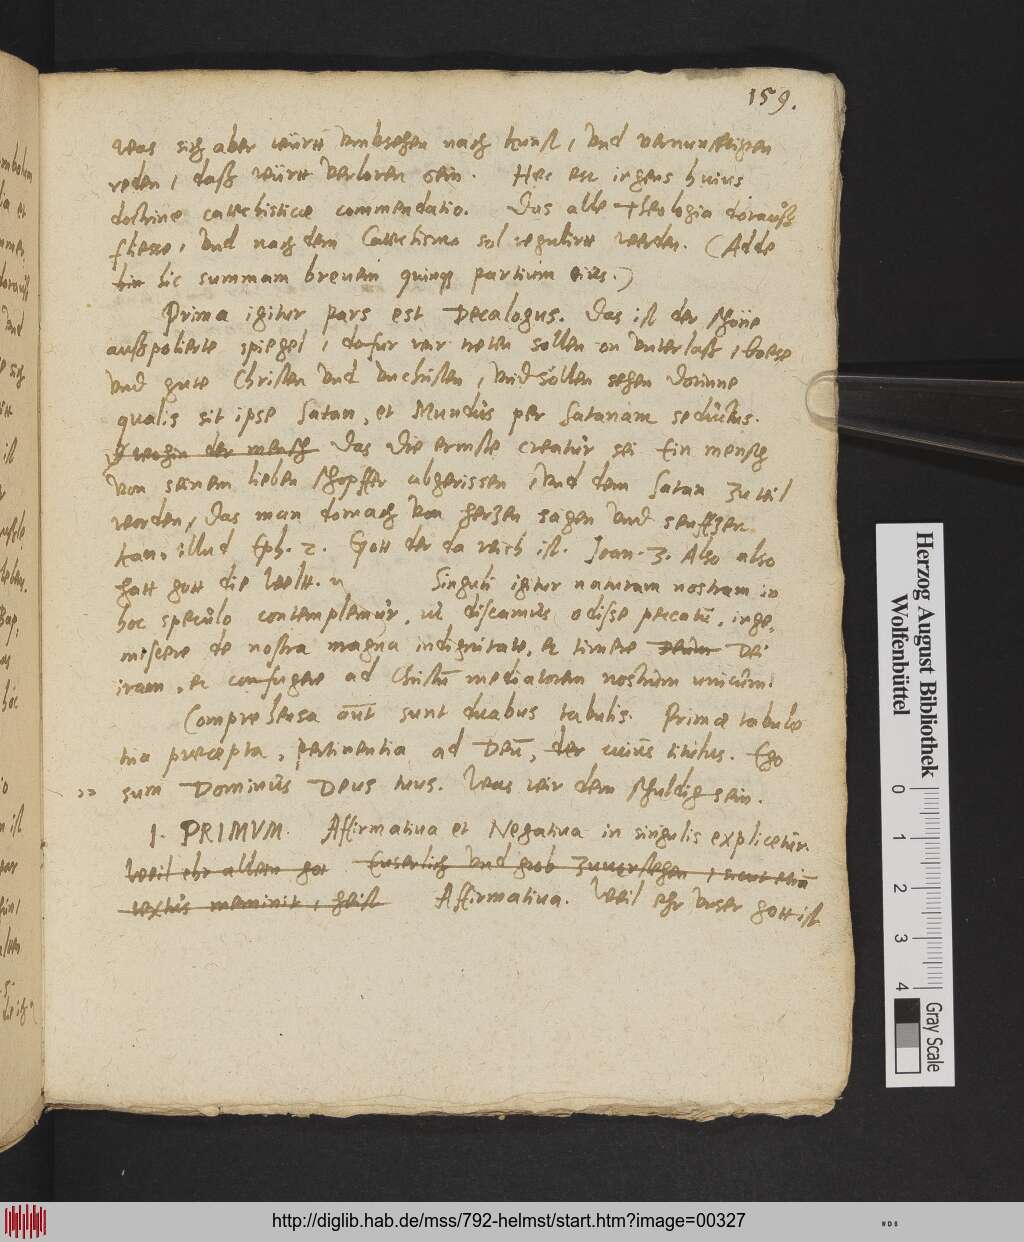 159.
was sich aber württ umbsehen nach kunst, und vernunfftigen
reden, daß württ verloren sein. Hec est igens huius
doctrinæ catechisticæ commendatio. Das alle Theologia dorauß
fliesse, und nach dem Catechismo sol regulirtt werden. (Adde
hic summam brevem quinq partium eius.)
Prima igitur pars est Decalogus. Das ist der schöne
außpolierte spiegel, dafur wir treten sollen on unterlaß, boese
und gute Christen und unchristen, und sollen sehen dorinne
qualis sit ipse Satan, et Mundus per Satanam seductus.
der mensch Das Die ermste creatur sei Ein mensch
von seinem lieben schopffer abgerissen, und dem Satan zu teil
worden, Das man dornach von herzen sagen und seuffzen
kan, illud Eph. 2. Gott der da reich ist. Joan. 3. Also also
hatt gott die Weltt. Singuli igitur naturam nostram in
hoc speculo contemplemur, ut discamus odisse peccatū, inge,
miscere de nostra magna indignitate, et timere Deum Dei
iram, et confugere ad Christū mediatorem nostrum unicum.
Comprehensa aūt sunt duabus tabulis. Primæ tabulæ
tria præcepta, pertinentia ad Deū, der cuius titulus. Ego
sum Dominus Deus tuus. Was wir dem schuldig sein.
1. PRIMVM. Affirmativa et Negativa in singulis explicetur.
Weil ehr allein got Euserlich und grob zuverstehen, sicut etiā
textus meminit, heist Affirmativa. Weil ehr unser gott ist
Herzog August Bibliothek
Wolfenbüttel
0 1 2 3 4
Gray Scale
http://diglib.hab.de/mss/792-helmst/start.htm?image=00327